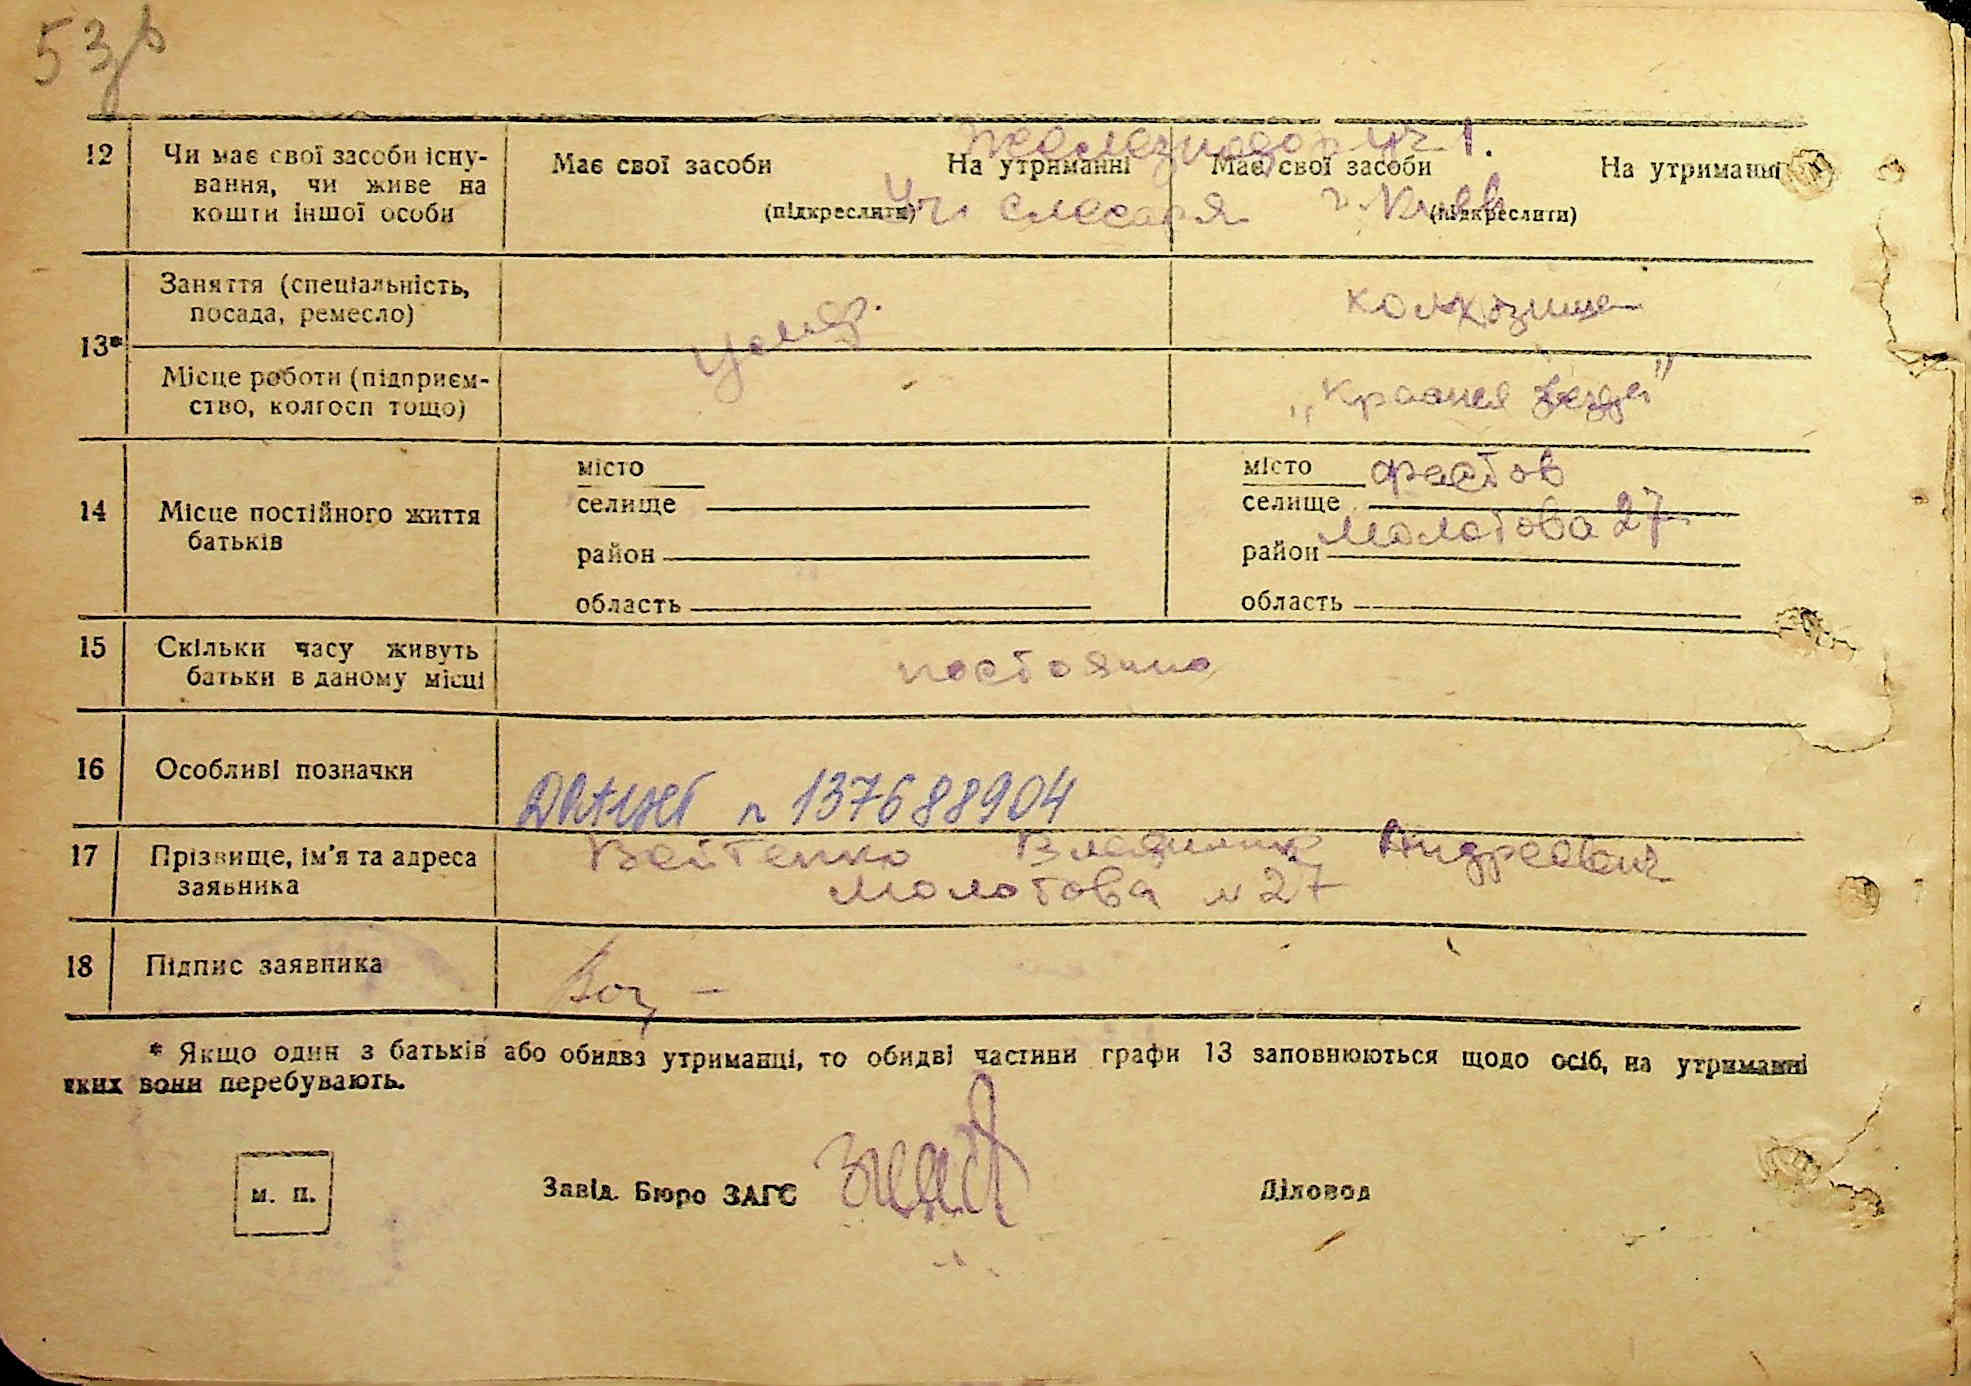 53
12 Чи має свої засоби існу-
вання, чи живе на
кошти іншої особи
Має свої засоби На утриманні
(підкреслити)
Має свої засоби На утриманні
(підкреслити)
уч 1.
Уч. слесаря г. Киев
13*
Заняття (спеціальність,
посада, ремесло)
умер.
колхозница
Місце роботи (підприєм-
ство, колгосп тощо)
"Красная
14 Місце постійного життя
батьків
місто
селище
район
область
місто Фастов
селище
Молотова 27
район
область
15 Скільки часу живуть
батьки в даному місці
постоянно
16 Особливі позначки
n 137688904
17 Прізвище, ім'я та адреса
заявника
Войтенко Владимир Андреевич
Молотова N 27
18 Підпис заявника
* Якщо один з батьків або обидва утриманці, то обидві частини графи 13 заповнюються щодо осіб, на утриманні
яких вони перебувають.
м. п.
Завід. Бюро ЗАГС
Діловод